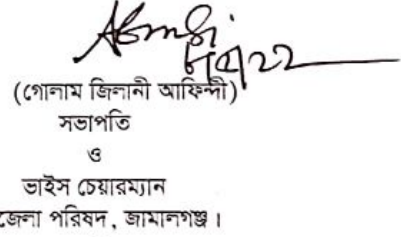 (গোলাম জিলানী আফিন্দী)
সভাপতি
ও
ভাইস চেয়ারম্যান
জেলা পরিষদ, জামালগঞ্জ।